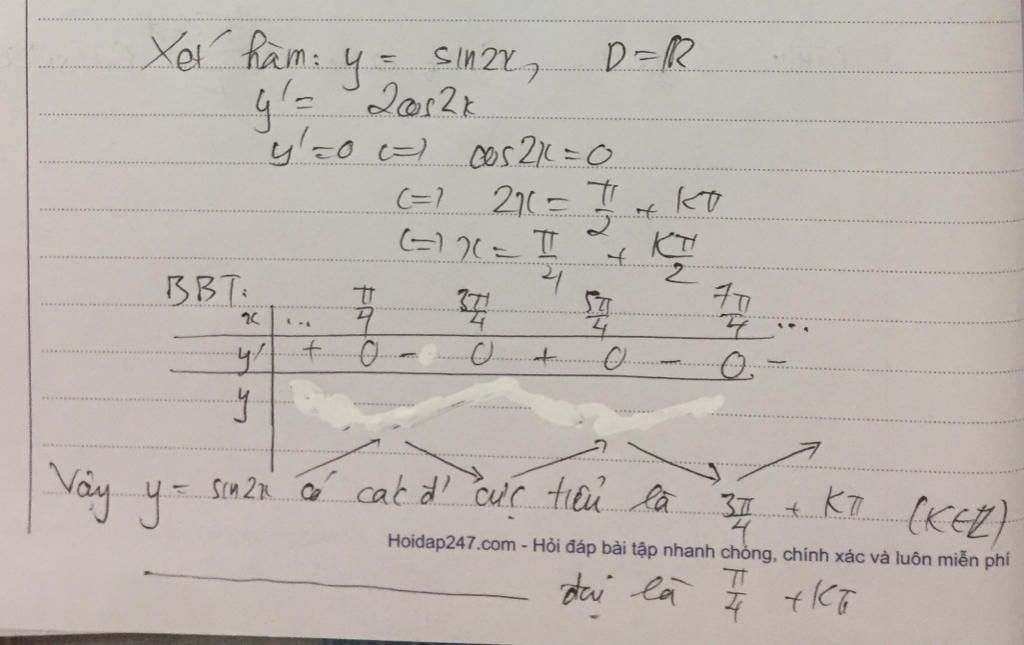 Xét hàm: y = sin2x, D = ℝ
y' = 2cos2x
y' = 0 <=> cos2x = 0
<=> 2x = π/2 + kπ
<=> x = π/4 + kπ/2
BBT:
x ... π/4 3π/4 5π/4 7π/4 ...
y' + 0 - 0 + 0 - 0 -
y
Vậy y = sin2x có các đ' cực tiểu là 3π/4 + kπ (k∈Z)
Hoidap247.com - Hỏi đáp bài tập nhanh chóng, chính xác và luôn miễn phí
đại là π/4 + kπ